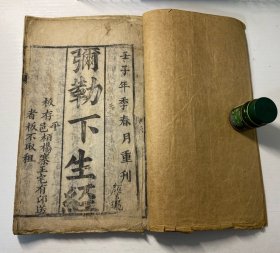 壬子年季春月重刊
彌勒下生經
板存邑栢楊寨王宅有印送
者板不取租